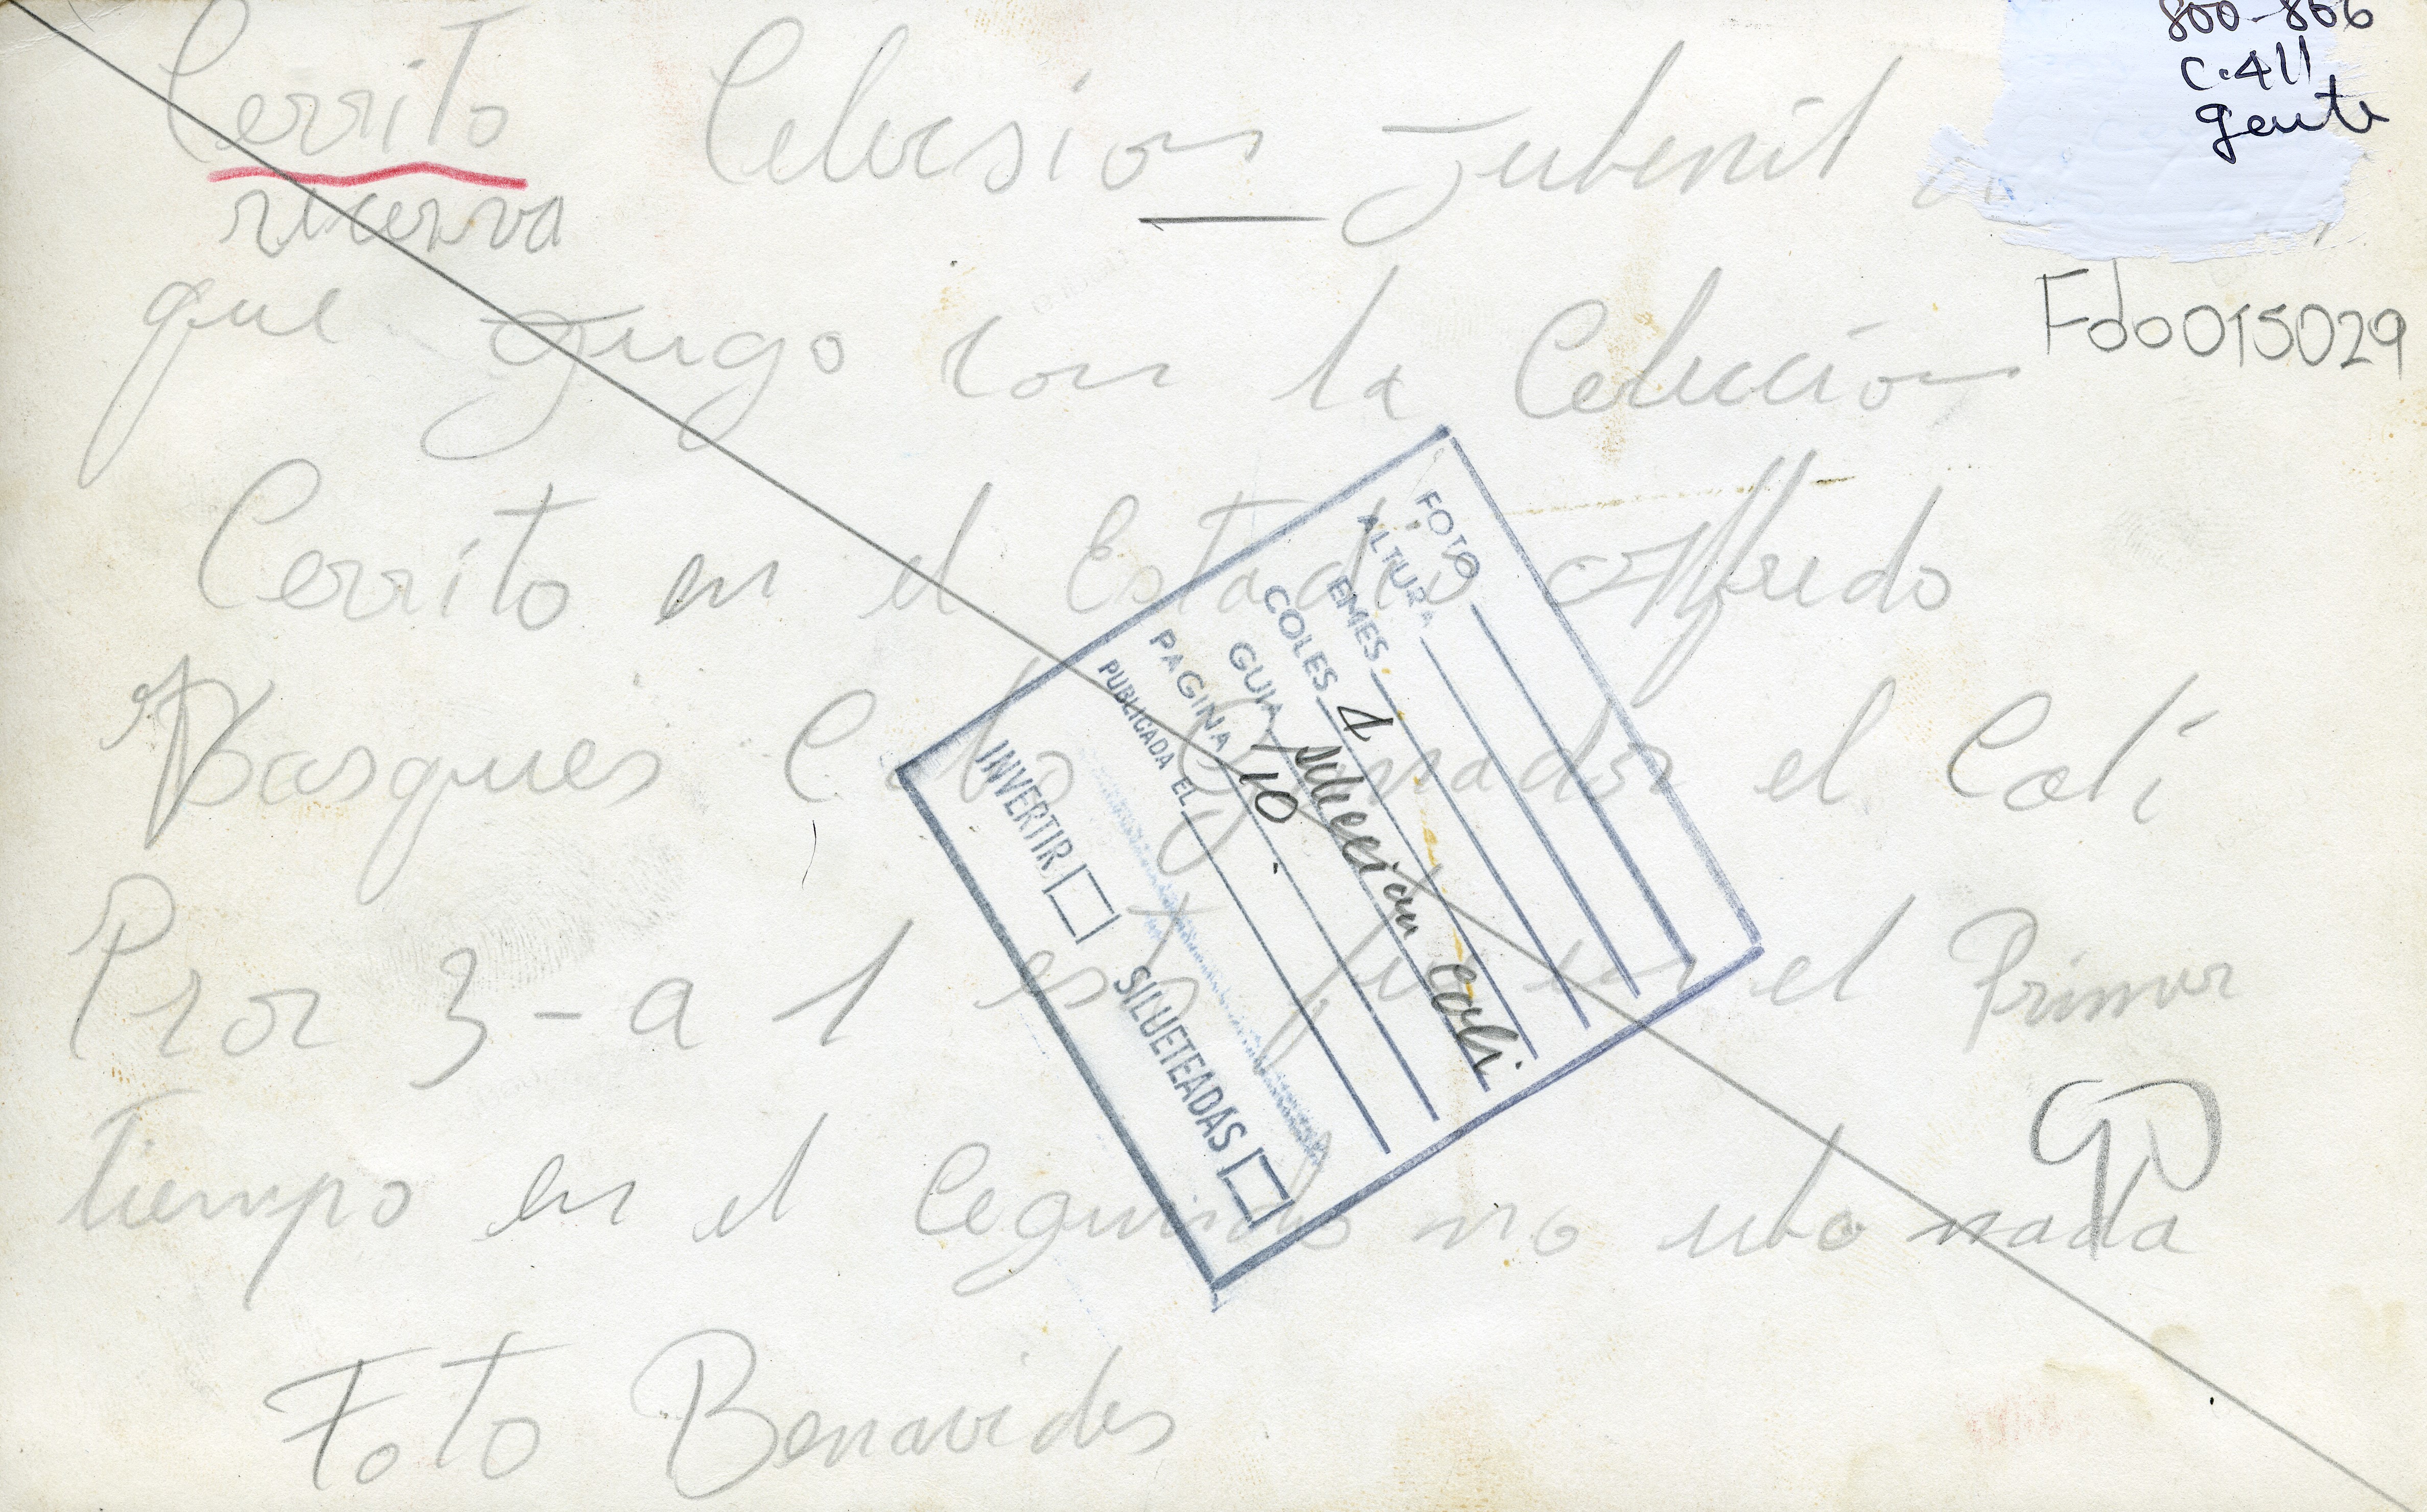 800-866
C.411
gente
Cerrito Celecsion Jubenil
recerva
que Jugo con la Celeccion
Fdo015029
Cerrito en el Estadio Alfredo
Vasques Cobo Ganador el Cali
Por 3-a 1 esto fue en el Primer
Tiempo en el Cegundo no ubo nada
Foto Benavides
FOTO
ALTURA
EMES
COLES 4
GUIA selección Cali
PAGINA 10
PUBLICADA EL
INVERTIR
SILUETEADAS